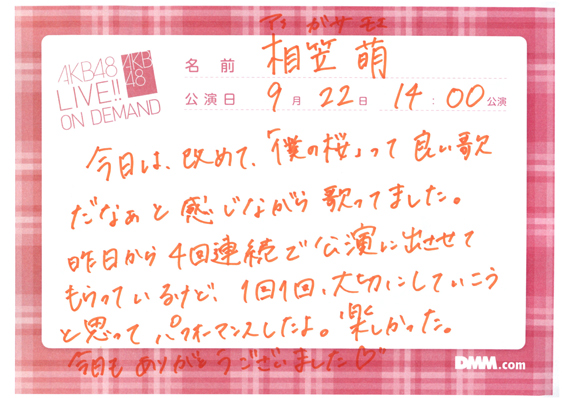 アイ がサ モエ
AKB48
LIVE!!
ON DEMAND
AKB
48
名前 相笠 萌
公演日 9月22日 14:00公演
今日は、改めて、「僕の桜」って良い歌
だなぁと感じながら歌ってました。
昨日から4回連続で公演に出させて
もらっているけど、1回1回、大切にしていこう
と思ってパフォーマンスしたよ。楽しかった。
今日もありがとうございました♡
DMM.com